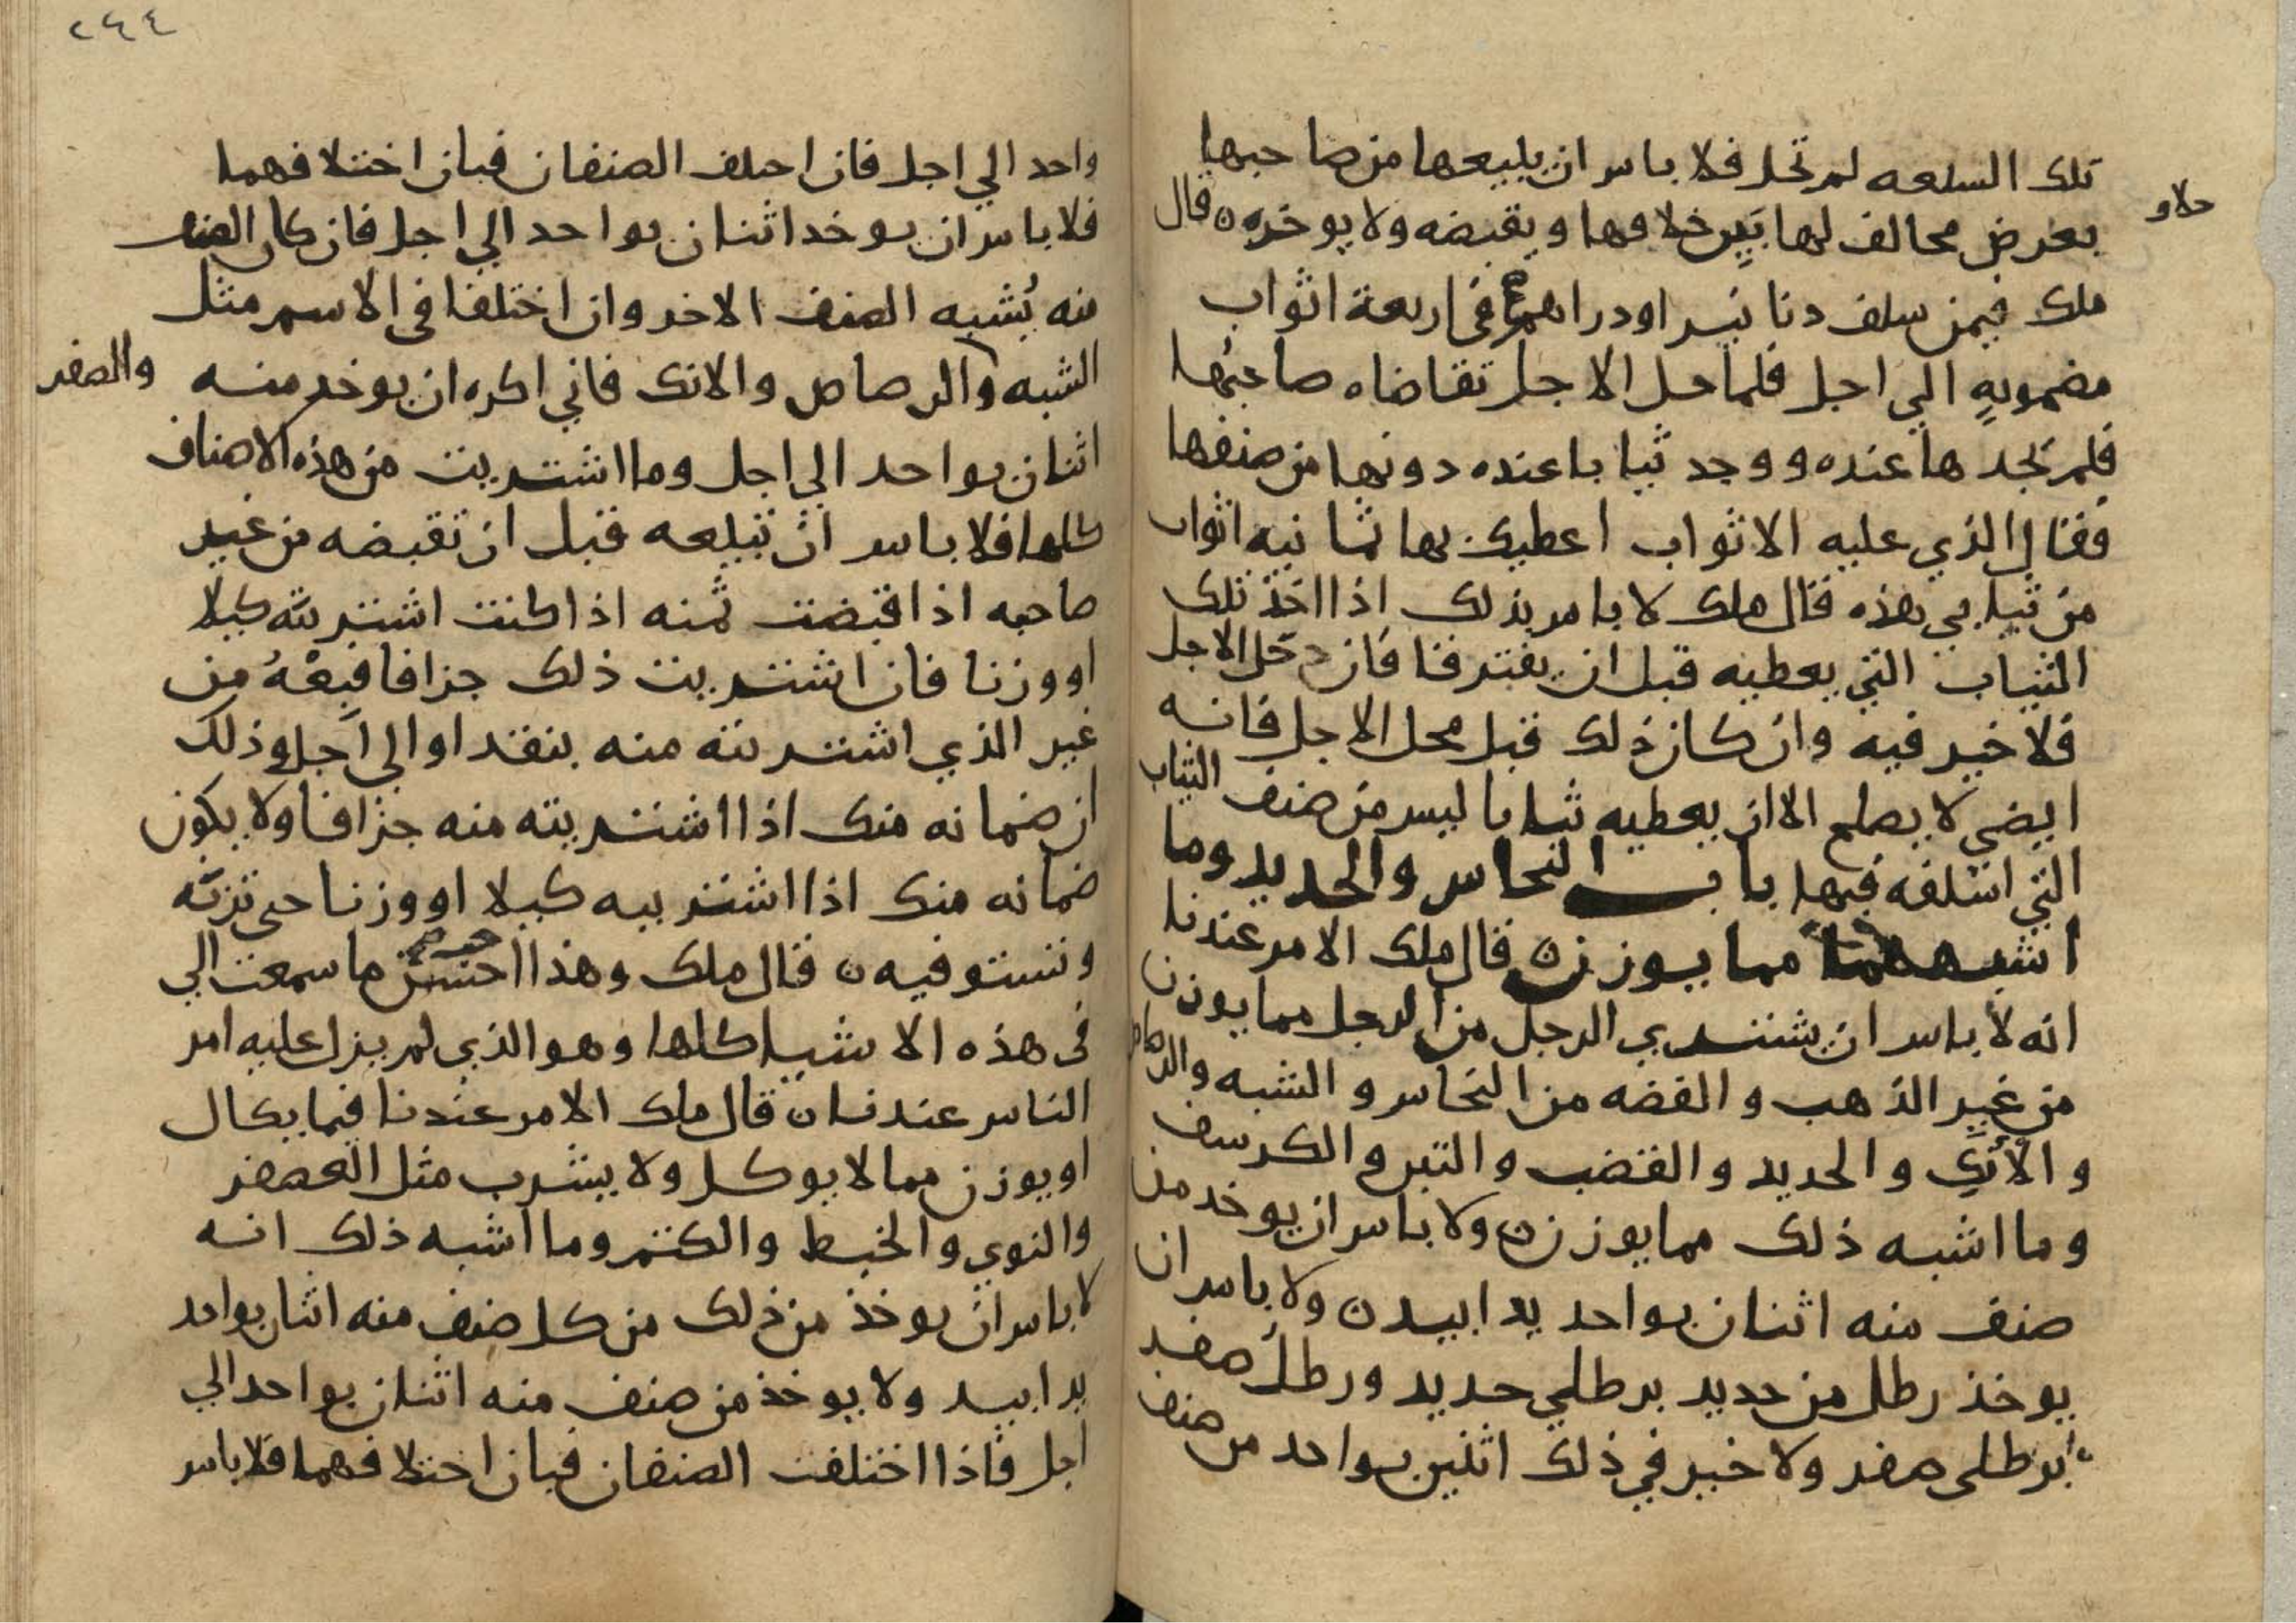 تلك السلعه لم تحل فلا باس ان يبيعها من صاحبها
بعرض مخالف لها بين خلافها ويقبضه ولا يوخره ٥ قال
ملك فيمن سلف دنانير او دراهم في اربعة اثواب
مضمونه الي اجل فلما حل الاجل تقاضاه صاحبها
فلم يجدها عنده ووجد ثيابا عنده دونها من صنفها
فقال الذي عليه الاثواب اعطيك بها ثمانيه اثواب
من ثيابي هذه قال ملك لا باس بذلك اذا اخذ تلك
الثياب التي يعطيه قبل ان يفترقا فان دخل الاجل
فلا خير فيه وان كان ذلك قبل محل الاجل فانه
ايضي لا يصلح الا ان يعطيه ثيابا ليس من صنف الثياب
التي اسلفه فيها باب النحاس والحديد وما
اشبههما مما يوزن ٥ قال ملك الامر عندنا
انه لا باس ان يشتري الرجل من الرجل مما يوزن
من غير الذهب والفضه من النحاس والشبه والرصاص
والأنك والحديد والقضب والتين والكرسف
وما اشبه ذلك مما يوزن ٥ ولا باس ان يوخد من
صنف منه اثنان بواحد يدا بيد ٥ ولا باس ان
يوخذ رطل من حديد برطلي حديد ورطل صفر
برطلي صفر ولا خير في ذلك اثنين بواحد من صنف
٢٤٤
واحد الي اجل فان احلف الصنفان فبان اختلافهما
فلا باس ان يوخد اثنان بواحد الي اجل فان كان الصنف
منه يُشبه الصنف الاخر وان اختلفا في الاسم مثل
الشبه والرصاص والانك فاني اكره ان يوخد منه
والصفر
اثنان بواحد الي اجل وما اشتريت من هذه الاصناف
كلها فلا باس ان تبيعه قبل ان تقبضه من غير
صاحبه اذا قبضت ثمنه اذا كنت اشتريته كيلا
او وزنا فان اشتريت ذلك جزافا فبِعْهُ من
غير الذي اشتريته منه بنقد او الي اجل وذلك
ان ضمانه منك اذا اشتريته منه جزافا ولا يكون
ضمانه منك اذا اشتريته كيلا او وزنا حي تزنه
وتستوفيه ٥ قال ملك وهذا احب ما سمعت الي
في هذه الاشيا كلها وهو الذي لم يزل عليه امر
الناس عندنا ٥ قال ملك الامر عندنا فيما يكال
او يوزن مما لا يوكل ولا يشرب مثل العصفر
والنوي والخبط والكتم وما اشبه ذلك انه
لا باس ان يوخذ من ذلك من كل صنف منه اثنان بواحد
يدا بيد ولا يوخذ من صنف منه اثنان بواحد الي
اجل فاذا اختلفت الصنفان فبان اختلافهما فلا باس